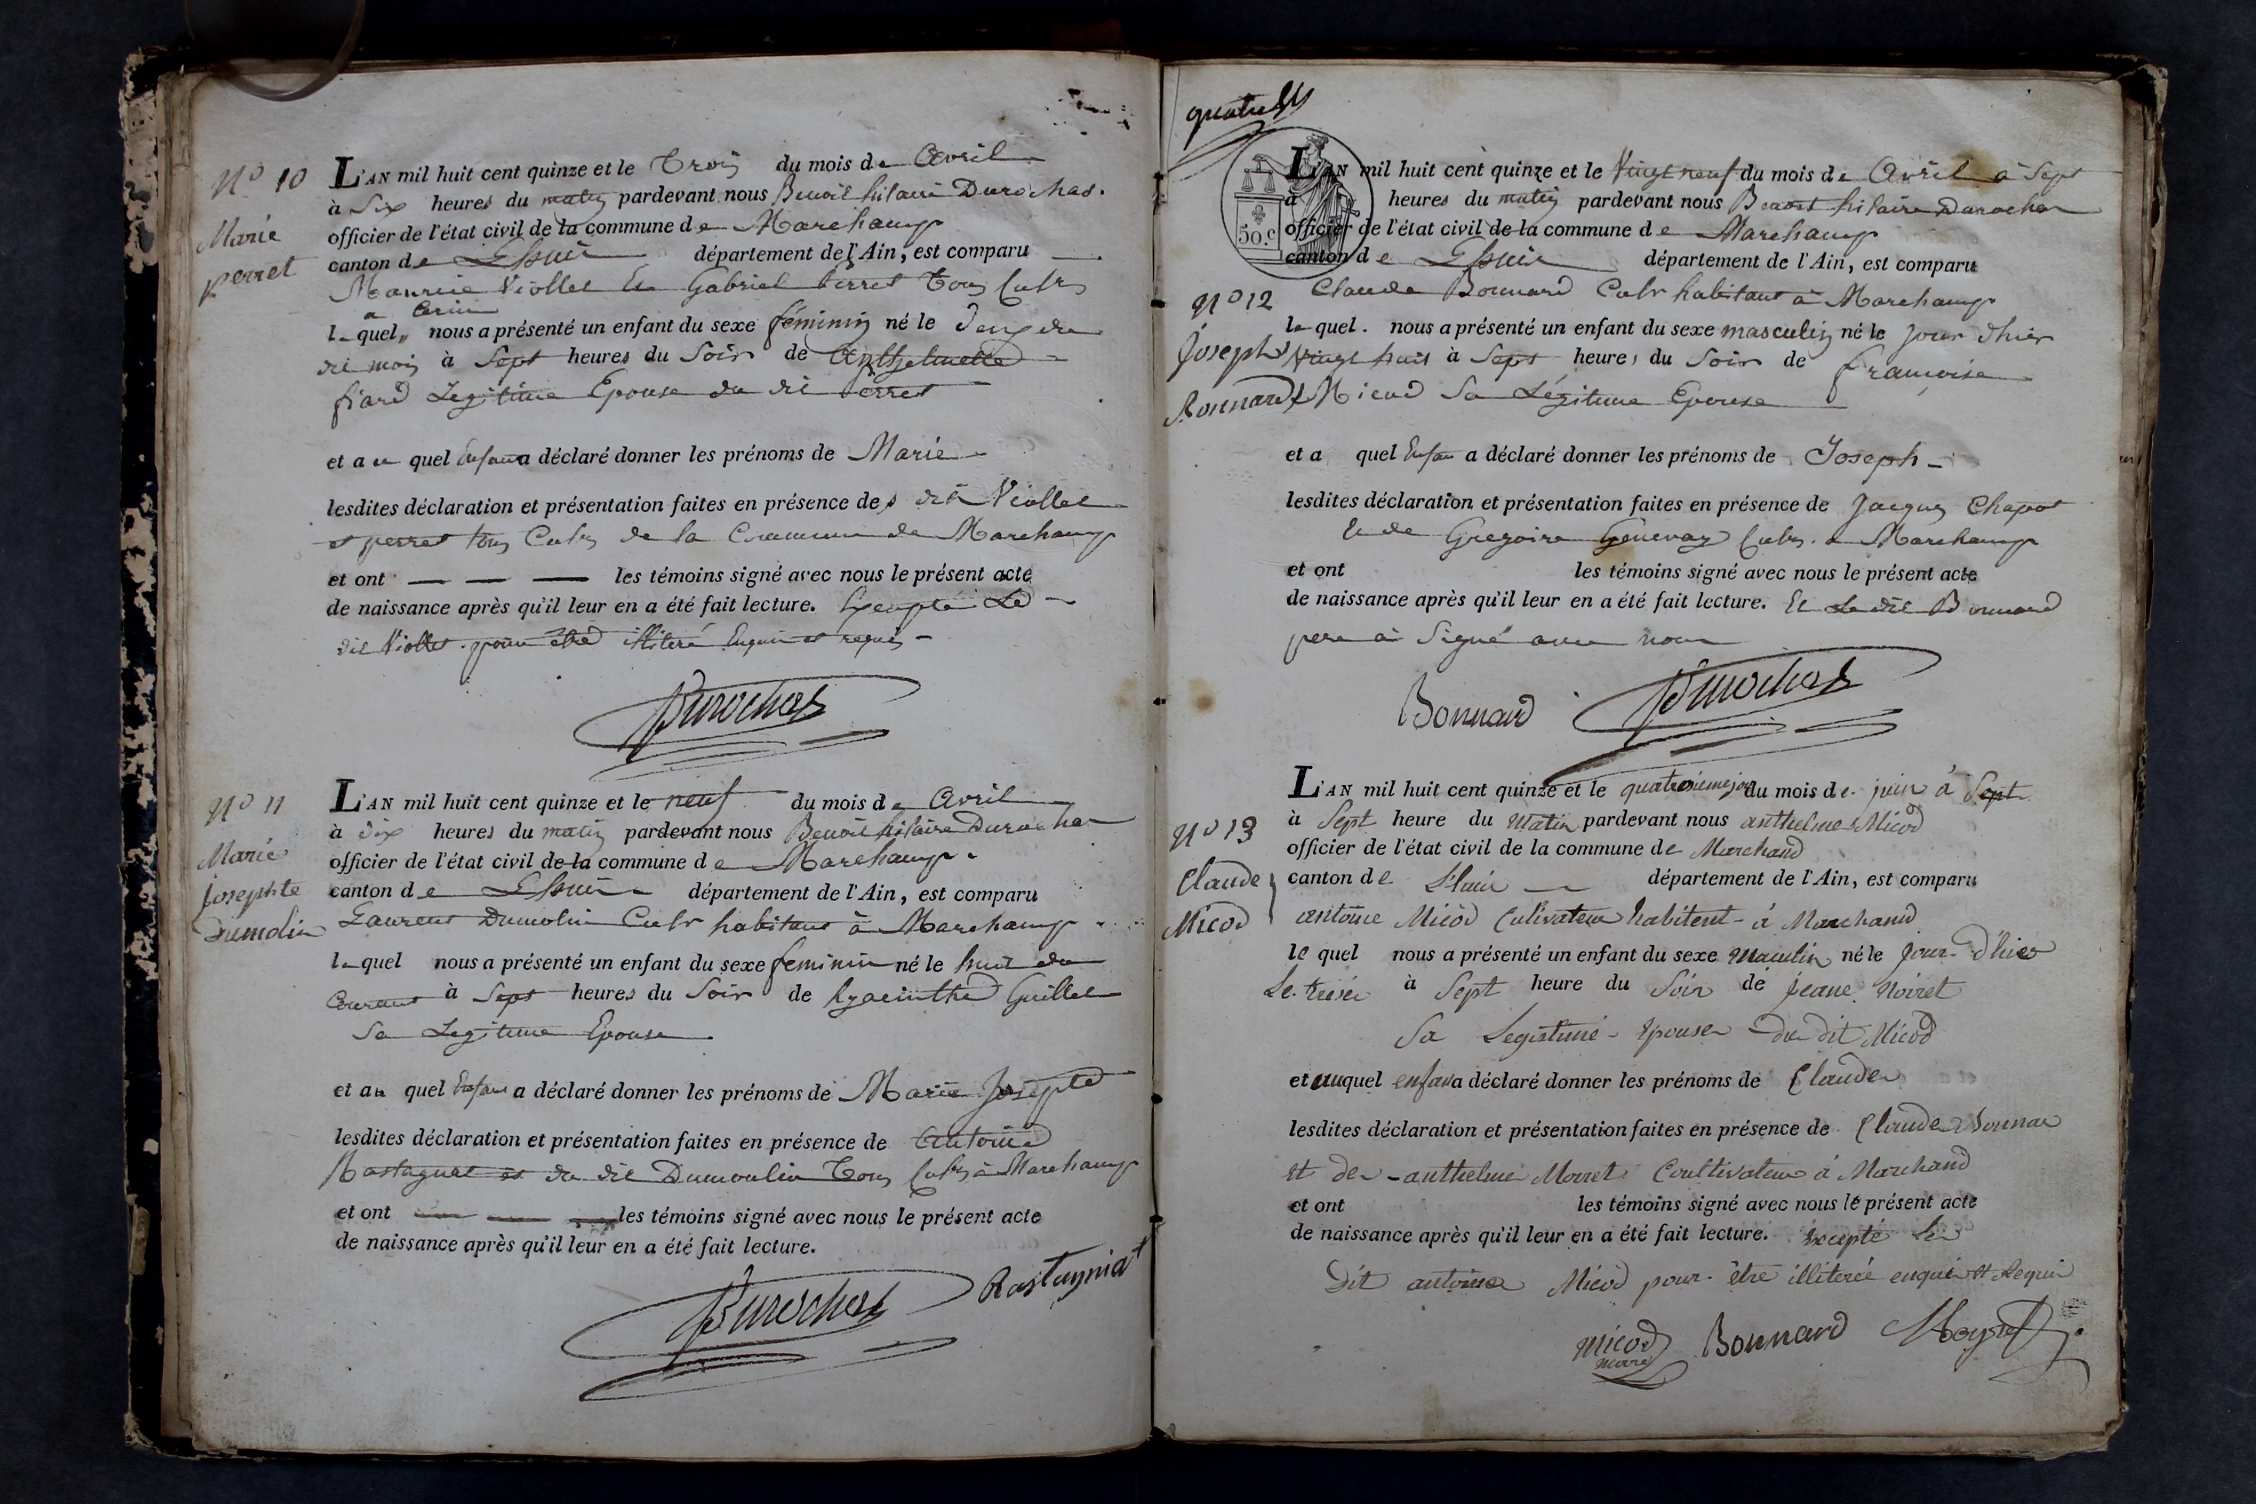 N° 10
Marie
perret
L'AN mil huit cent quinze et le Trois du mois de Avril
à Six heures du matin pardevant nous Benoit hilaire Durochas.
officier de l'état civil de la commune de Marchamp
canton de Lhuis département de l'Ain, est comparu
Maurice Viollet Et Gabriel perret Tous Cultrs
a Cerin
lequel nous a présenté un enfant du sexe féminin né le deux du
dit mois à Sept heures du Soir de Anthelmette
fiard Legitime Epouse du dit perret
et au quel Enfant a déclaré donner les prénoms de Marie
lesdites déclaration et présentation faites en présence des dits Viollet
et perret tous Cultrs de la Commune de Marchamp
et ont les témoins signé avec nous le présent acte
de naissance après qu'il leur en a été fait lecture. Excepté Le
dit Viollet pour être illiteré Enquis et requis
Durochas
N° 11
Marie
Josephte
Dumolin
L'AN mil huit cent quinze et le neuf du mois de Avril
à dix heures du matin pardevant nous Benoit hilaire Durochas
officier de l'état civil de la commune de Marchamp.
canton de Lhuis département de l'Ain, est comparu
Laurent Dumolin Cultr habitant à Marchamp
lequel nous a présenté un enfant du sexe feminin né le huit du
Courant à Sept heures du Soir de hyacinthe Guillet
Sa Legitime Epouse
et au quel Enfant a déclaré donner les prénoms de Marie Josepte
lesdites déclaration et présentation faites en présence de Antoine
Rastagnat et du dit Dumoulin Tous Cultrs à Marchamp
et ont les témoins signé avec nous le présent acte
de naissance après qu'il leur en a été fait lecture.
Durochas Rastagniat
quatre
50.c
L'AN mil huit cent quinze et le Vingt neuf du mois de Avril à Sept
à heures du matin pardevant nous Benoit hilaire Durochas
officier de l'état civil de la commune de Marchamp
canton de Lhuis département de l'Ain, est comparu
N° 12
Joseph
Bonnard
Claude Bonnard Cultr habitant à Marchamp
lequel. nous a présenté un enfant du sexe masculin né le jour d'hier
Vingt huit à Sept heures du Soir de françoise
Micod Sa Légitime Epouse
et a quel Enfan a déclaré donner les prénoms de Joseph
lesdites déclaration et présentation faites en présence de Jacques Chapot
Et de Gregoire Genevay Cultrs. a Marchamp
et ont les témoins signé avec nous le présent acte
de naissance après qu'il leur en a été fait lecture. Et Le dit Bonnard
pere a Signé avec nous
Bonnard Durochas
N° 13
Claude
Micod
L'AN mil huit cent quinze et le quatorziemejour du mois de juin à Sept
à Sept heure du Matin pardevant nous anthelme Micod
officier de l'état civil de la commune de Marchand
canton de Lhuis département de l'Ain, est comparu
antoine Micod Cultivateur habitent à Marchand
le quel nous a présenté un enfant du sexe Masculin né le Jour d'hier
Le treise à Sept heure du Soir de jeane Noiret
Sa Legistime epouse du dit Micod
et auquel enfant a déclaré donner les prénoms de Claude
lesdites déclaration et présentation faites en présence de Claude Bonnar
et de anthelme Moiret Coultivateur à Marchand
et ont les témoins signé avec nous le présent acte
de naissance après qu'il leur en a été fait lecture. excepté Le
Dit antoine Micod pour être illiterée enquis et Requis
micod Bonnard
maire